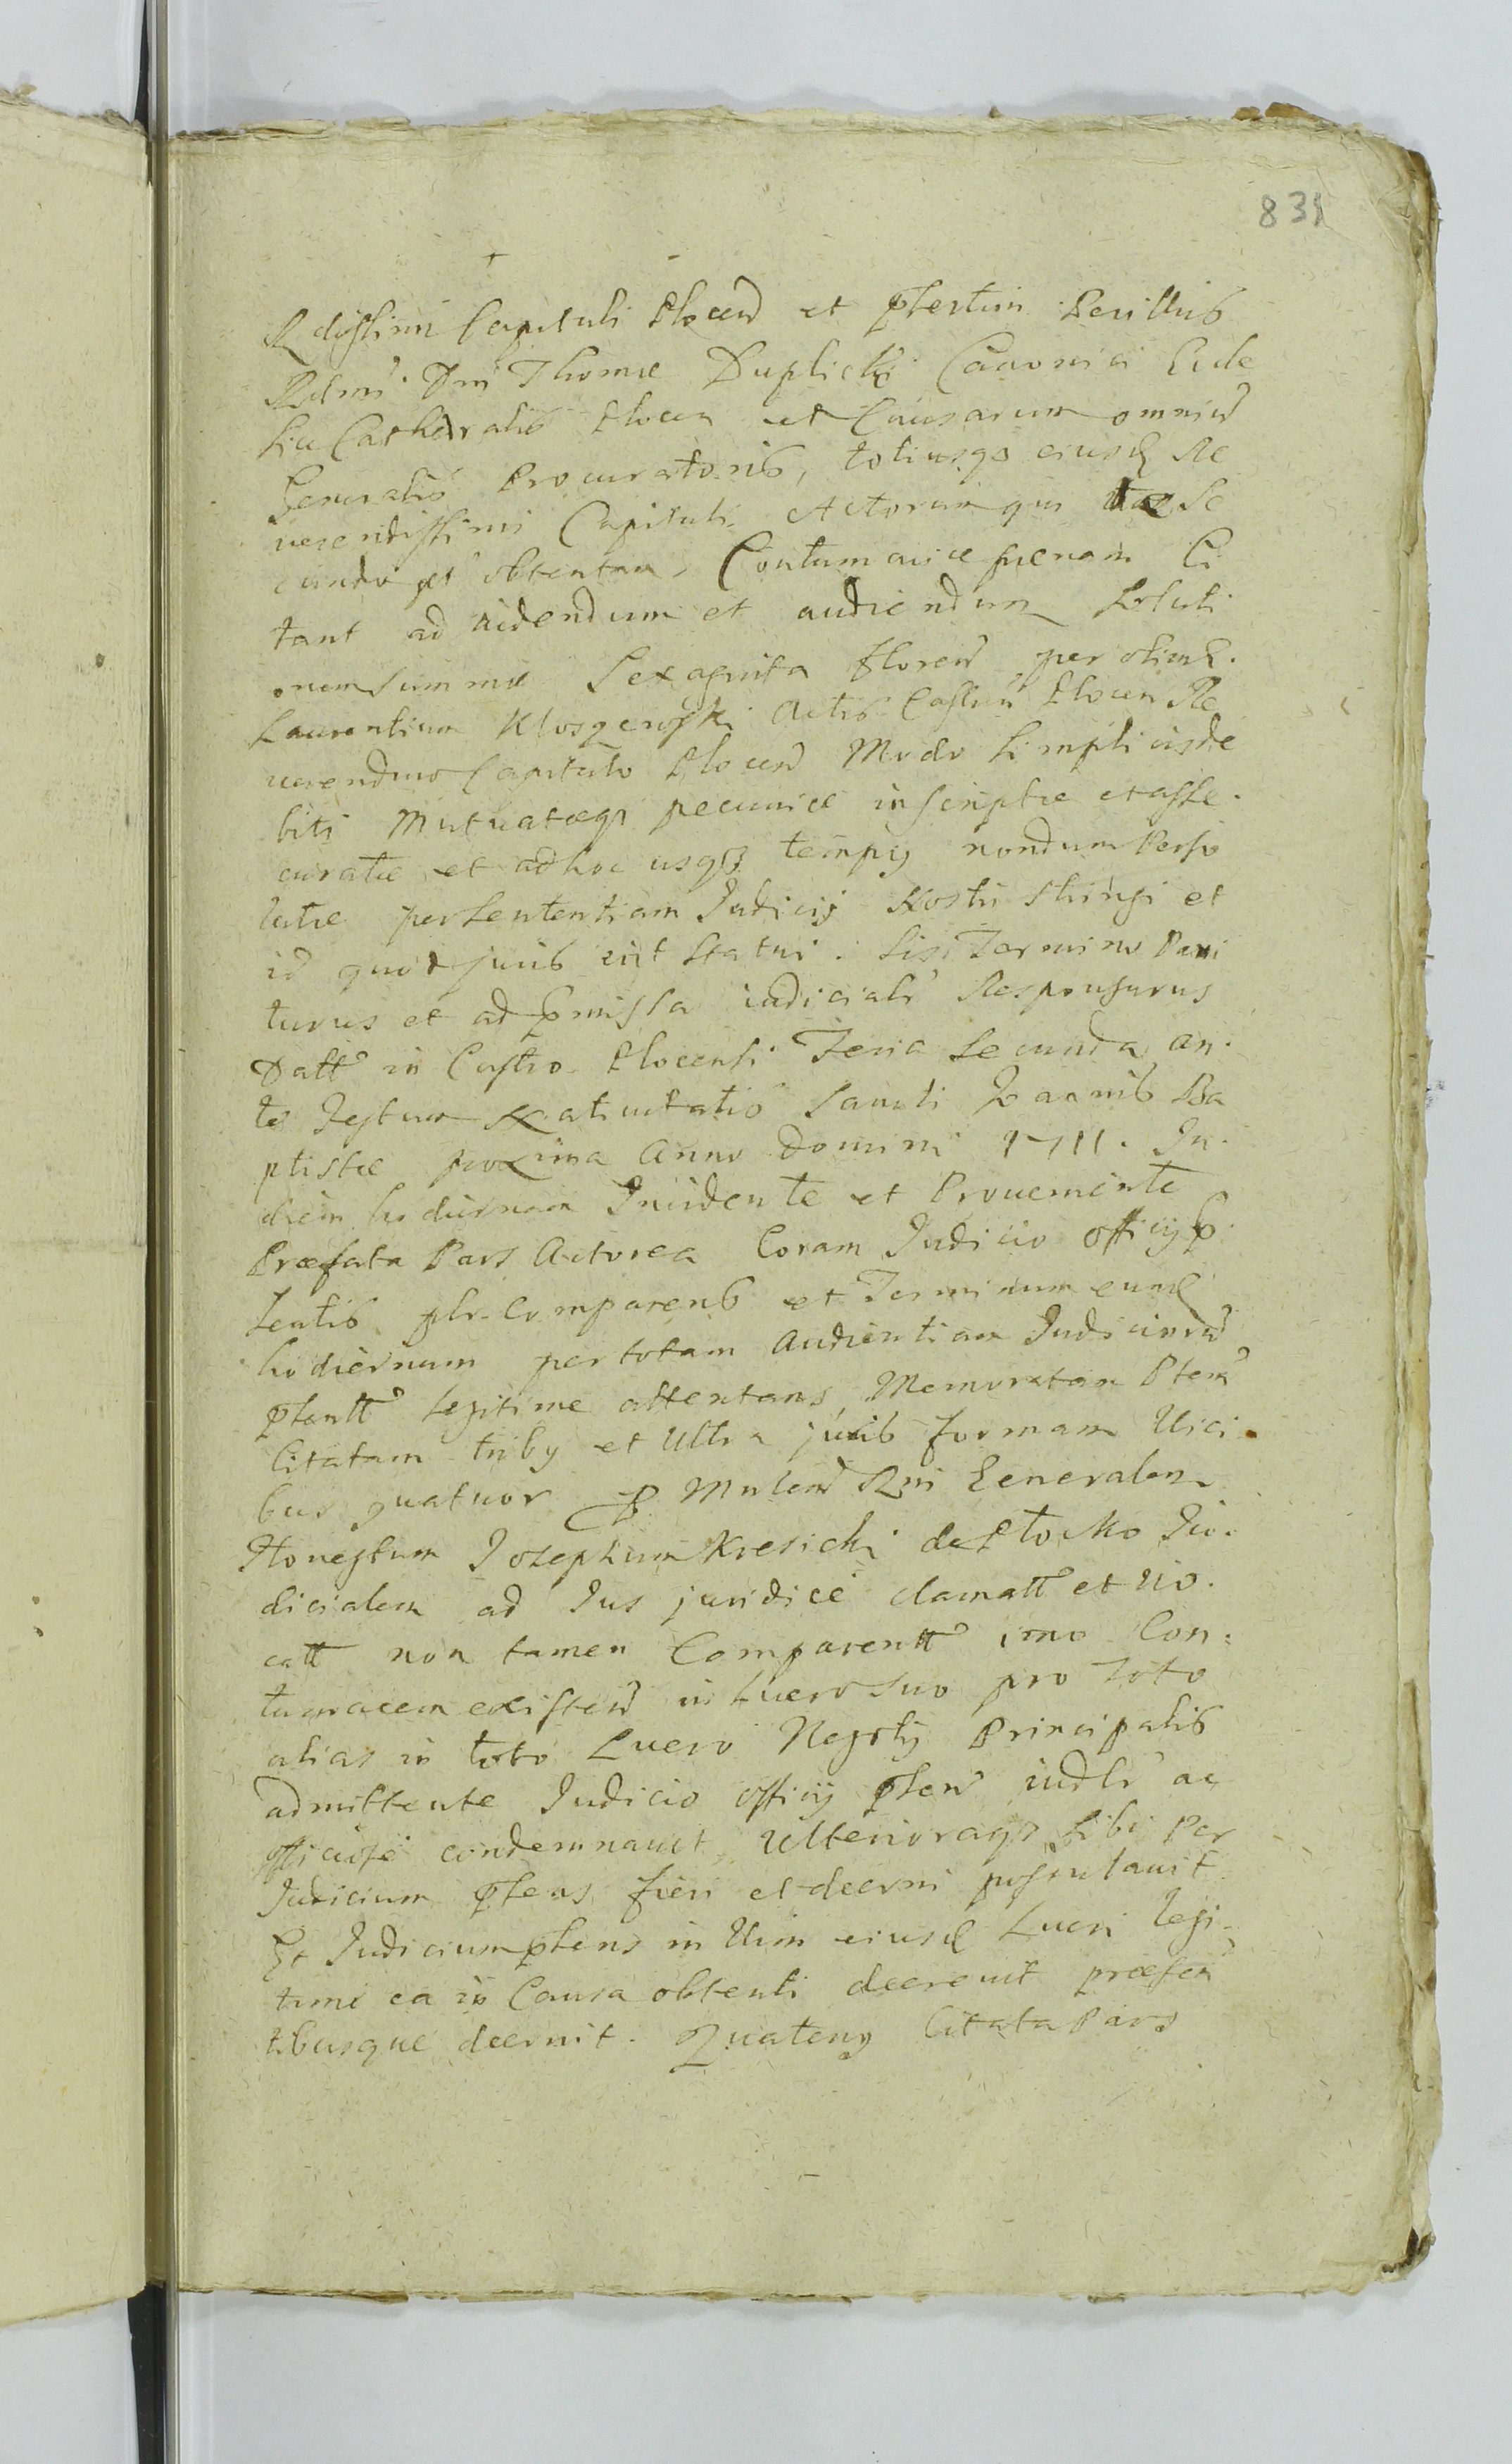 831
Rdissimi Capituli Plocen et pśertim Perillus
Rdmi Dni Thomæ Duplicki Canonici Eccle
siæ Cathedralis Plocen et Causarum omniu
Generalis Procuratoris, totiusqȝ eiusd Re
verendissimi Capituli Actorum qui Vos Se
cundo post obtentam Contumaciæ pænam Ci
tant ad videndum et audiendum Soluti
onem Summæ Sexaginta floren per olim G.
Laurentium Kloszewski Actis Castrn Plocen Re
verendmo Capitulo Plocen Modo Simplicis de
biti Mutuatæqȝ pecuniæ inscriptæ et asse.
curatæ et adhoc usqȝ tempus nondum Perso
lutæ per Sententiam Judicij Nostri Stringi et
id quod juris erit Statui. Sis Termino Pari
turus et ad pmissa iudicialr Responsurus
Datt in Castro Plocensi Feria Secunda an.
te Festum Nativitatis Sancti Joannis Ba
ptistæ proxima Anno Domini 1711. In.
diem hodiernam Incidente et Proveniente
Præfata Pars Actorea Coram Judicio Officij p
sentis plr Comparens et Terminum eund
hodiernum per totam Audientiam Judicioru
pśentt legitime attentans, Memoratam Ptem
Citatam tribus et Ultra juris formam Vici.
bus quatuor P Mnlem Rni Generalem
Honestum Josephum Kresicki de Płocko Ju.
dicialem ad Jus juridice clamatt et vo.
catt non tamen Comparentt imo Con:
tumacem existen in Lucro suo pro toto
alias in toto Lucro Negotij Principalis
admittente Judicio officij pśen iudlr ac
officiose condemnavit Ulterioraqȝ Sibi Per
Judicium pśens fieri et decerni postulavit
Et Judicium pśens in Vim eiusd Lucri legi
time ea in Causa obtenti decrevit præsen
tibusque decernit. Quatenus Citata Pars